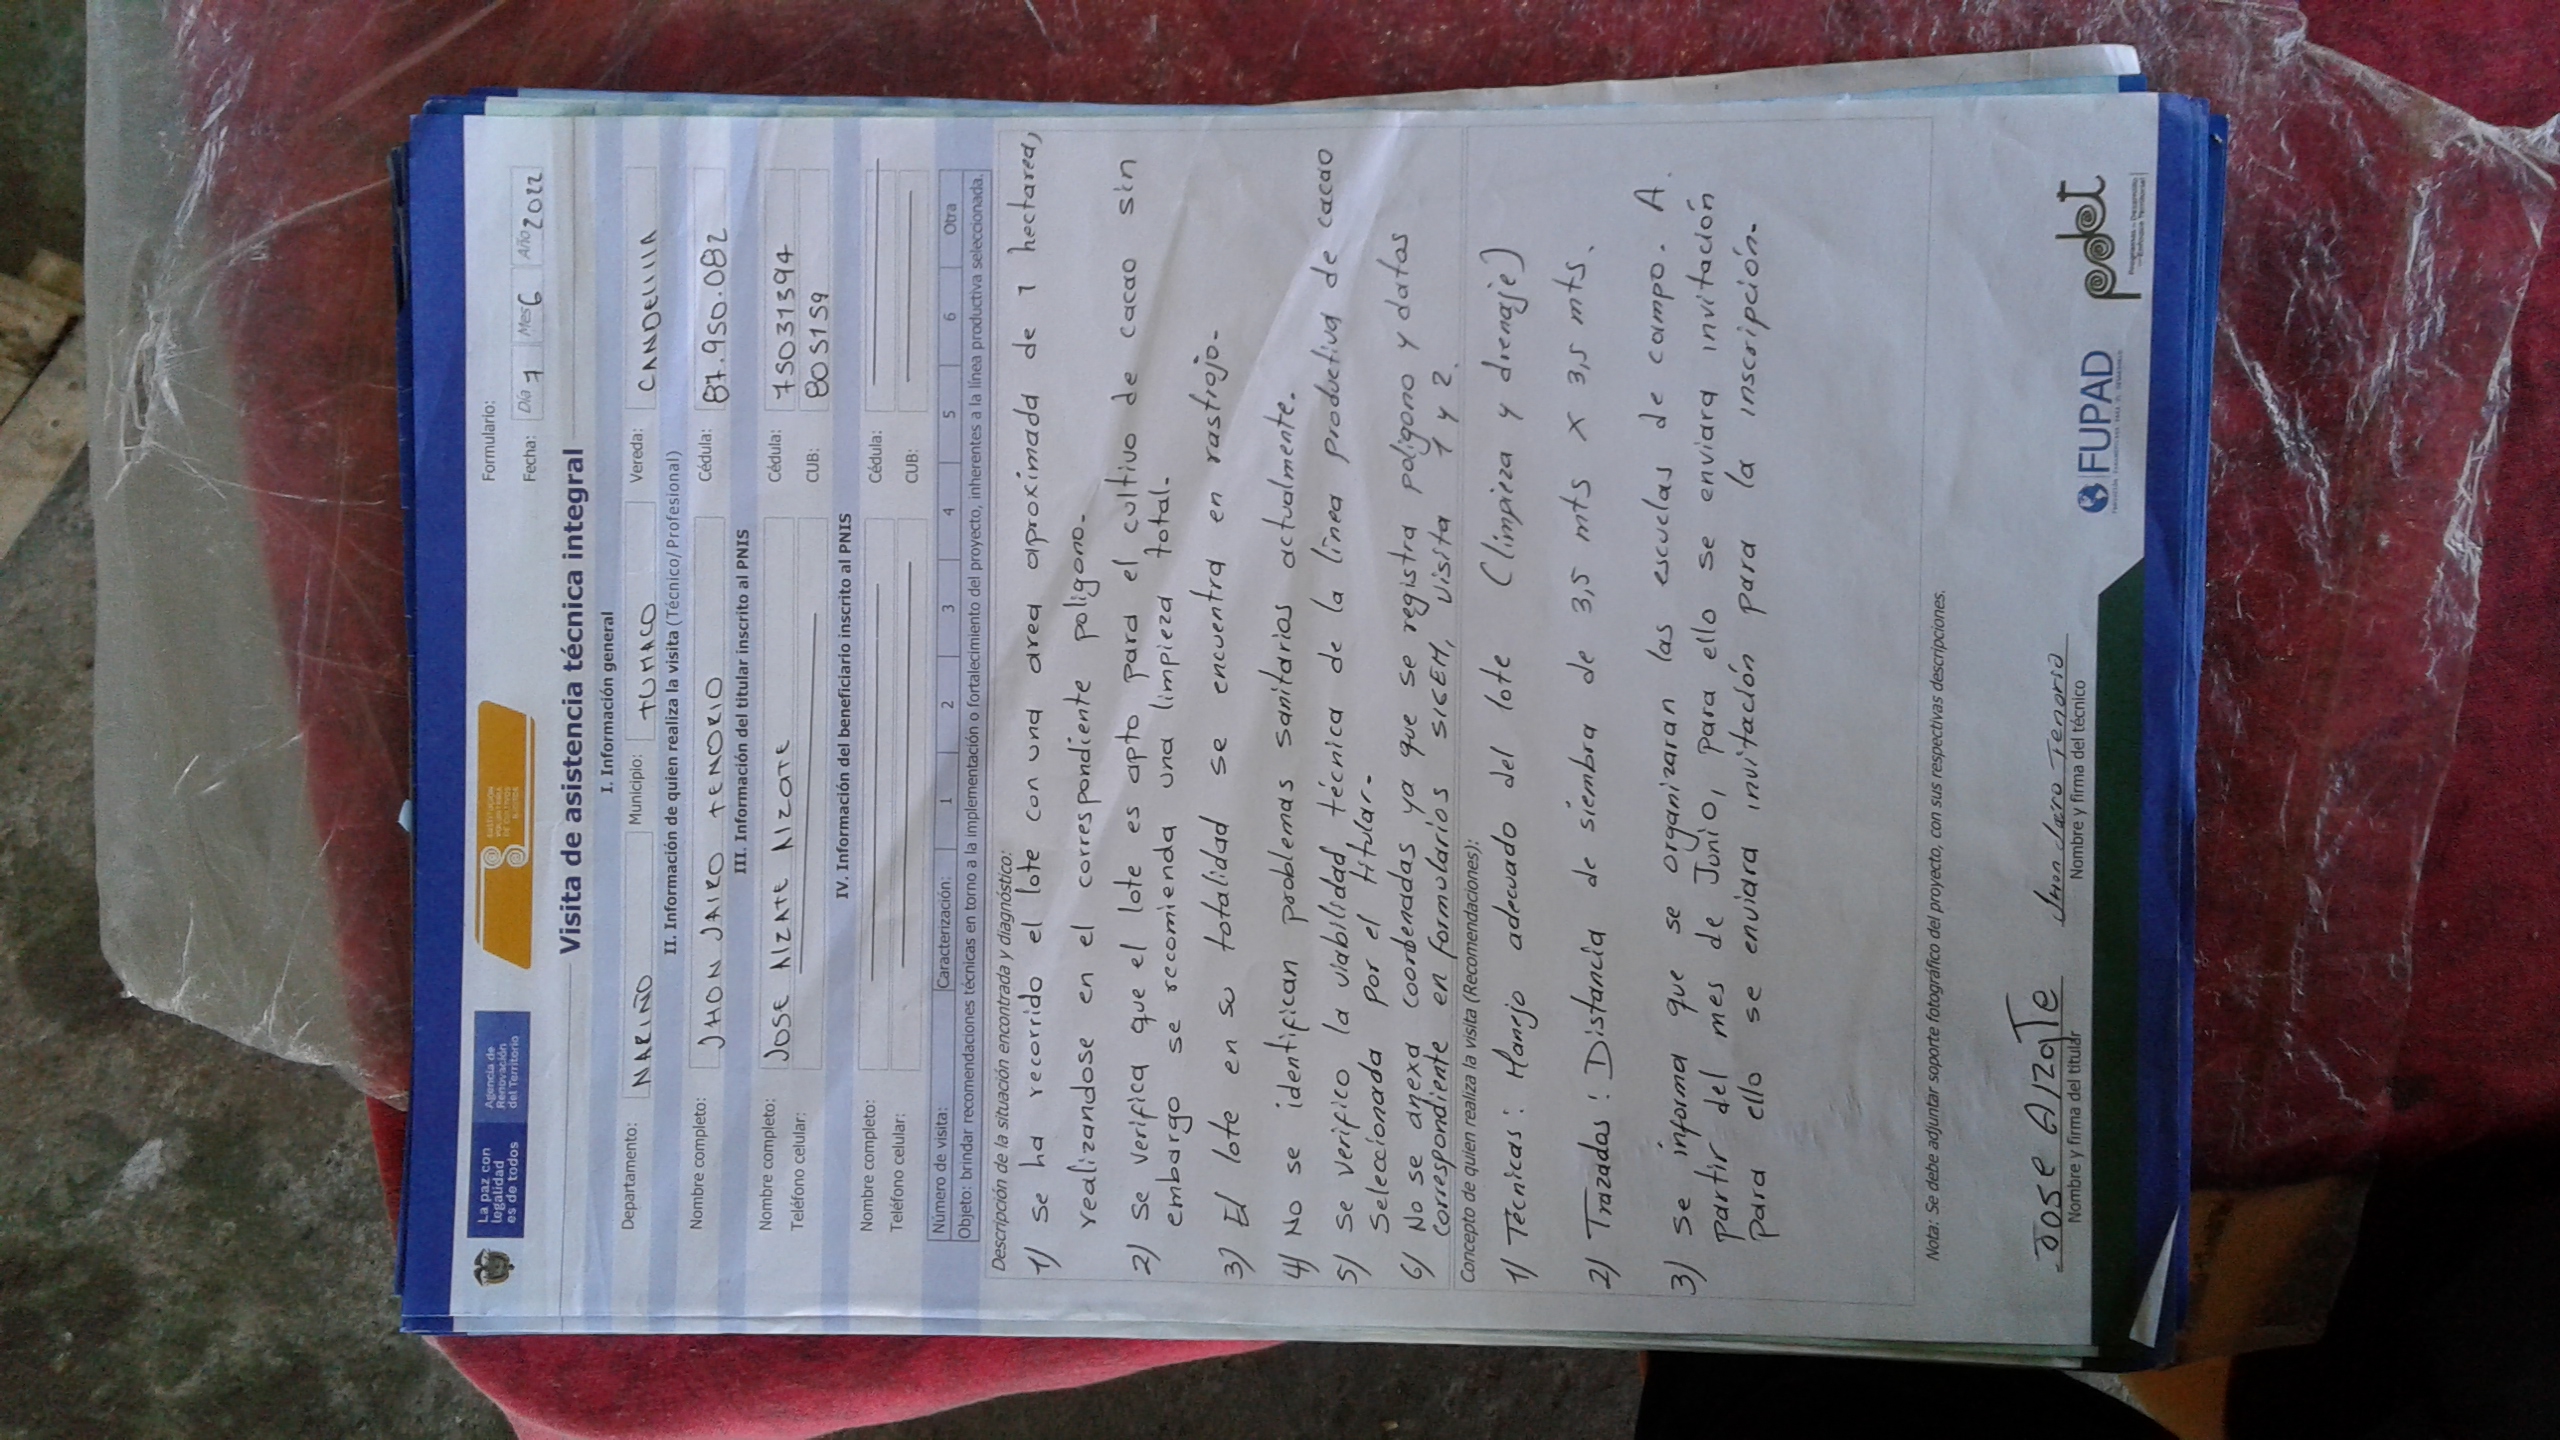 La paz con
legalidad
es de todos
Agencia de
Renovación
del Territorio
SUSTITUCIÓN
VOLUNTARIA
DE CULTIVOS
ILÍCITOS
Formulario:
Fecha: Día 7 Mes 6 Año 2022
Visita de asistencia técnica integral
I. Información general
Departamento: NARIÑO Municipio: TUMACO Vereda: CANDELILLA
II. Información de quien realiza la visita (Técnico/Profesional)
Nombre completo: JHON JAIRO TENORIO Cédula: 87.950.082
III. Información del titular inscrito al PNIS
Nombre completo: JOSE ALZATE ALZATE Cédula: 75031394
Teléfono celular: CUB: 805159
IV. Información del beneficiario inscrito al PNIS
Nombre completo: Cédula:
Teléfono celular: CUB:
Número de visita: Caracterización: 1 2 3 4 5 6 Otra
Objeto: brindar recomendaciones técnicas en torno a la implementación o fortalecimiento del proyecto, inherentes a la línea productiva seleccionada.
Descripción de la situación encontrada y diagnóstico:
1) se ha recorrido el lote con una area aproximada de 1 hectarea,
realizandose en el correspondiente poligono.
2) se verifica que el lote es apto para el cultivo de cacao sin
embargo se recomienda una limpieza total.
3) El lote en su totalidad se encuentra en rastrojo.
4) No se identifican problemas sanitarios actualmente.
5) se verifico la viabilidad técnica de la línea productiva de cacao
seleccionada por el titular.
6) No se anexa coordenadas ya que se registra poligono y datos
correspondiente en formularios SIGEM, visita 1 y 2.
Concepto de quien realiza la visita (Recomendaciones):
1) Técnicas: Manejo adecuado del lote (limpieza y drenaje)
2) Trazados: Distancia de siembra de 3,5 mts x 3,5 mts.
3) se informa que se organizaran las escuelas de campo. A.
partir del mes de Junio, para ello se enviara invitación
para ello se enviara invitación para la inscripción.
Nota: Se debe adjuntar soporte fotográfico del proyecto, con sus respectivas descripciones.
Jose AlzaTe
Jhon Jairo Tenorio
Nombre y firma del titular
Nombre y firma del técnico
FUPAD
pdet
Programas de Desarrollo
con Enfoque Territorial